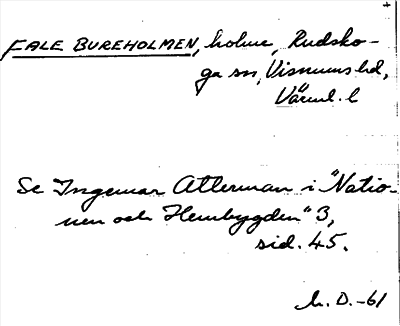 FALE BUREHOLMEN, holme, Rudsko-
ga sn, Visnums hd,
Värml. l
Se Ingemar Atterman i "Natio-
nen och Hembygden" 3,
sid. 45.
h. D. -61